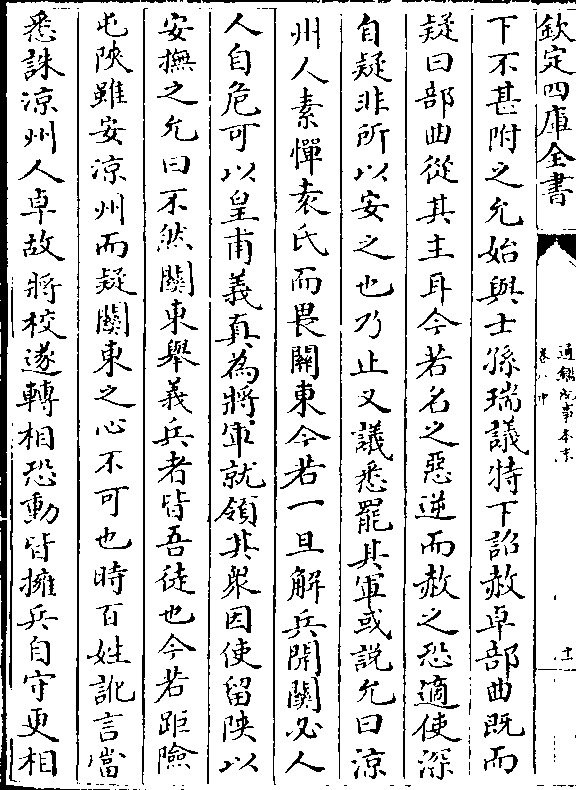 欽定四庫全書
通鑑紀事本末
卷八中
十一
下不甚附之允始與士孫瑞議特下詔赦卓部曲既而
疑曰部曲從其主耳今若名之惡逆而赦之恐適使深
自疑非所以安之也乃止又議悉罷其軍或說允曰涼
州人素憚袁氏而畏關東今若一旦解兵開關必人
人自危可以皇甫義真為將軍就領其衆因使留陝以
安撫之允曰不然關東舉義兵者皆吾徒也今若距險
屯陝雖安涼州而疑關東之心不可也時百姓訛言當
悉誅涼州人卓故將校遂轉相恐動皆擁兵自守更相